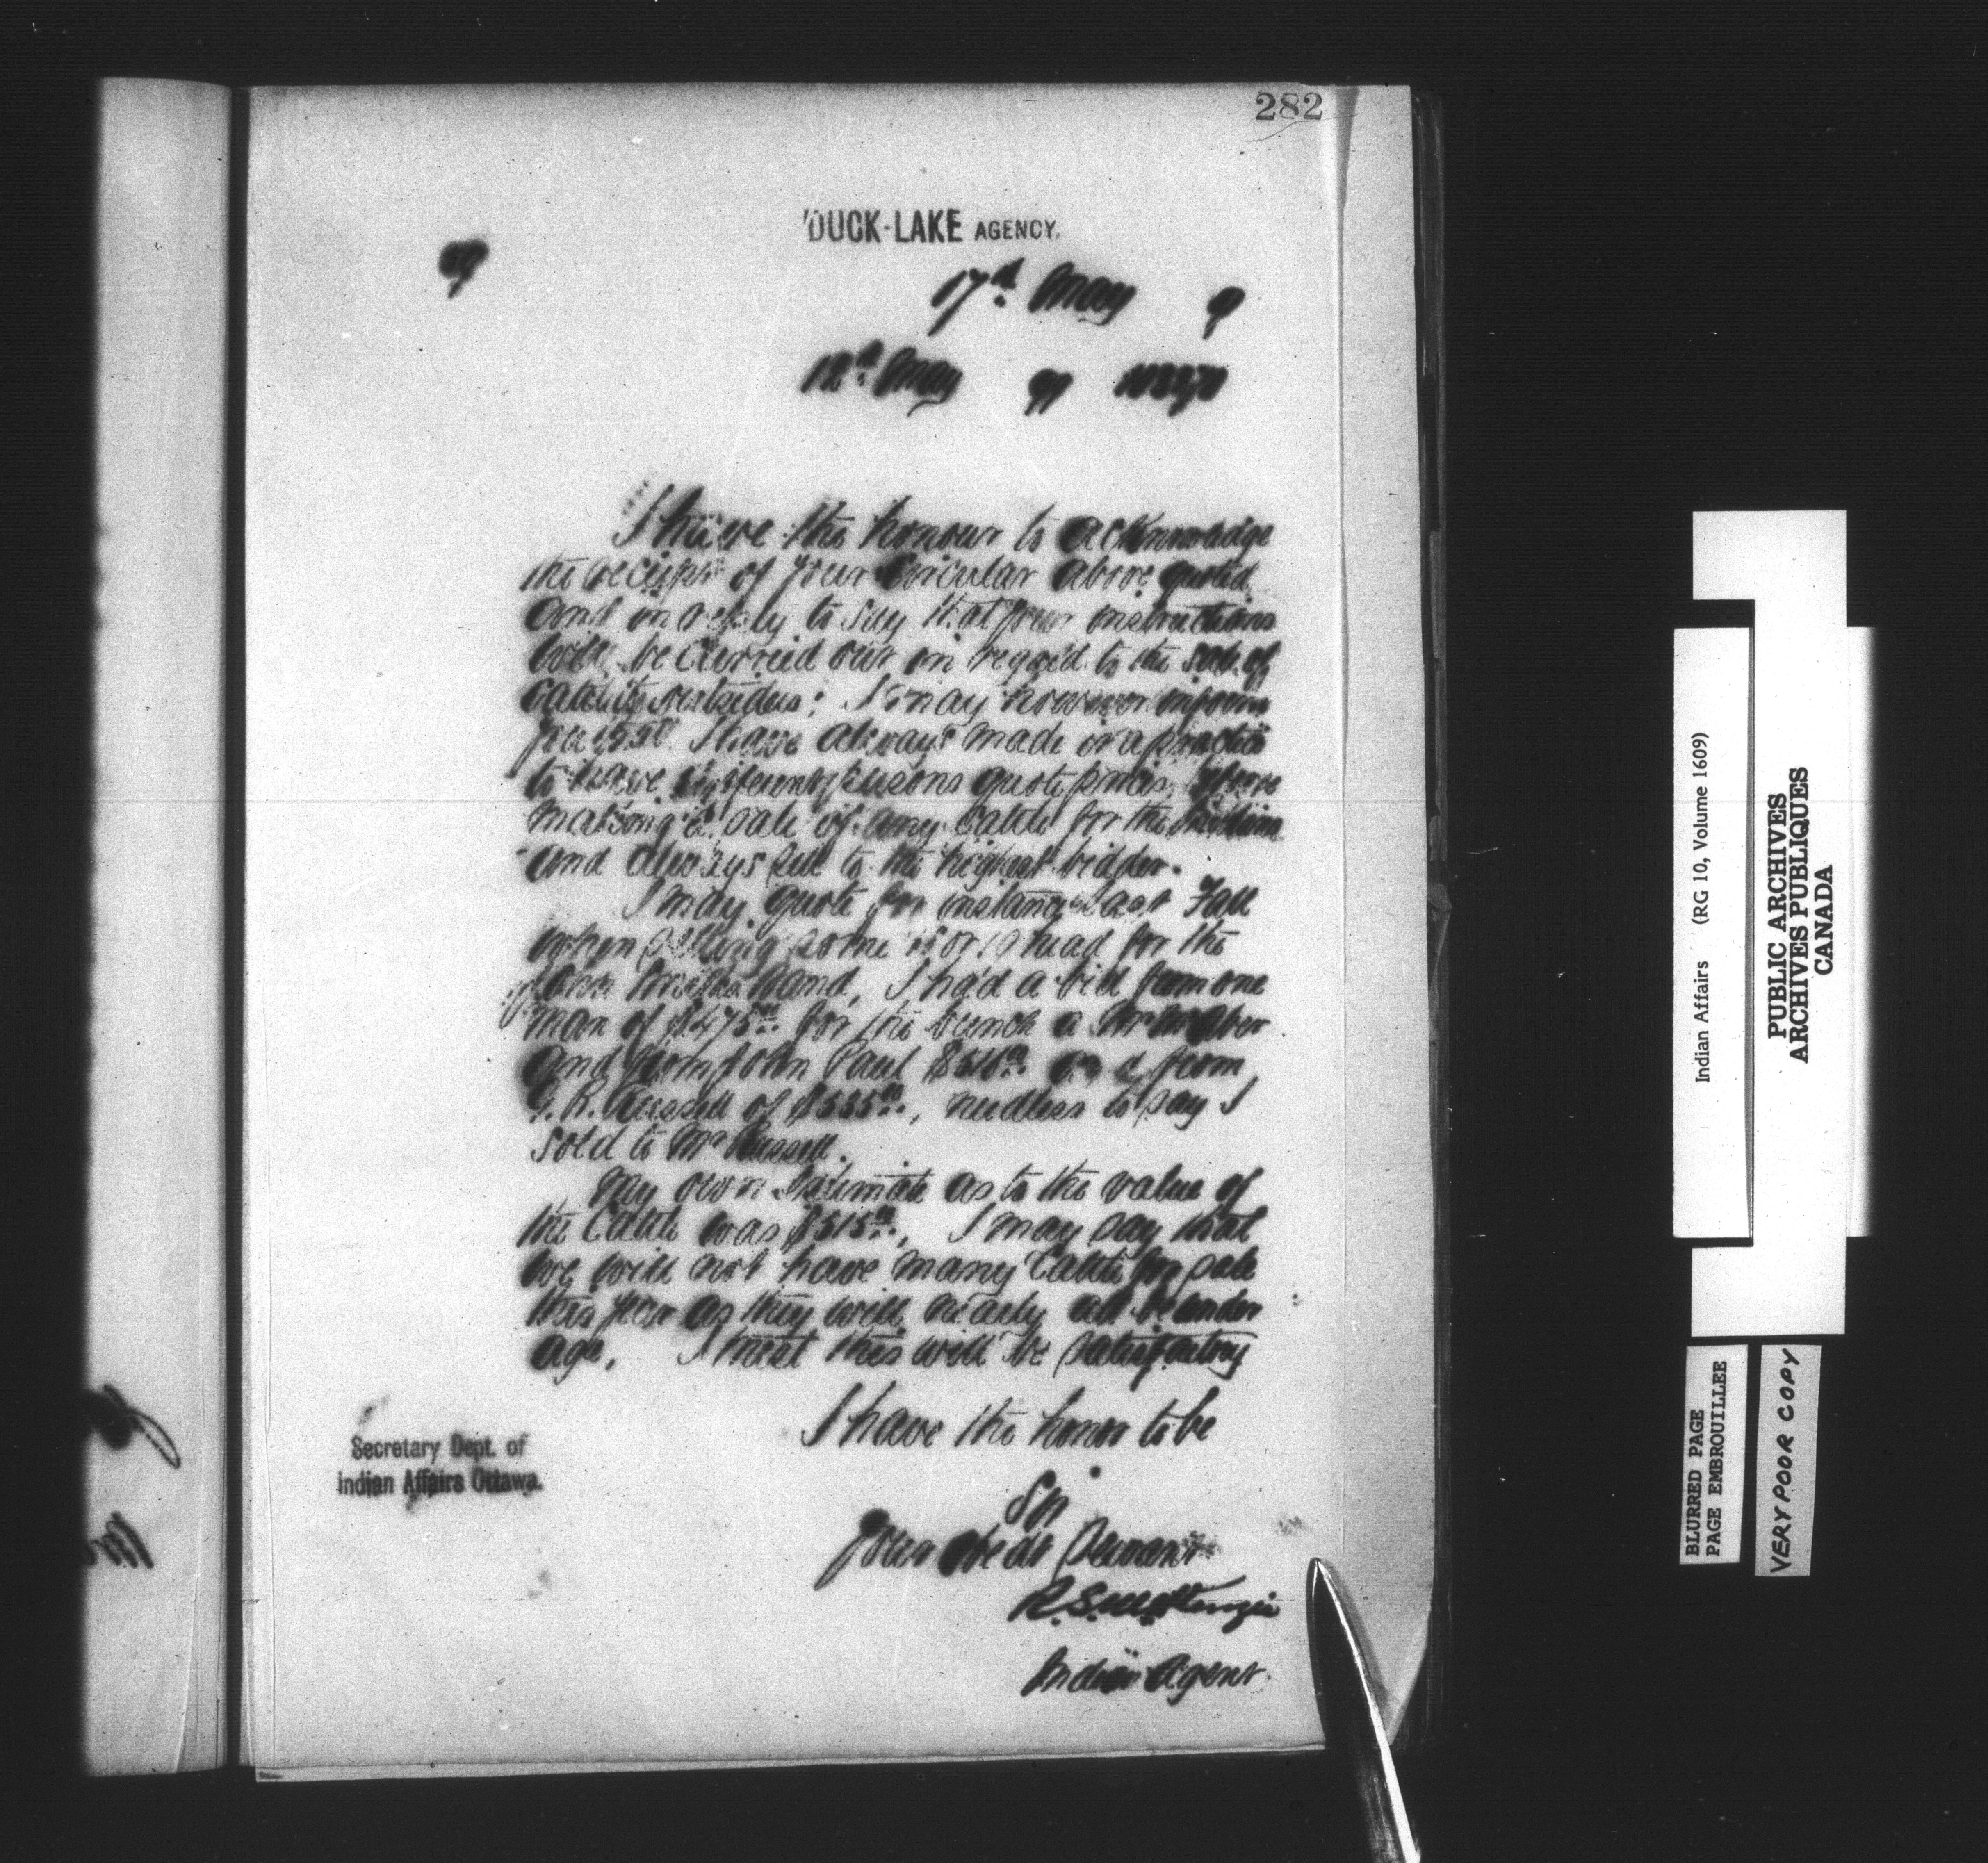 282
DUCK-LAKE AGENCY.
17th May 9
12th May 99
I have the honour to acknowledge
the receipt of your Circular above quoted
and in reply to say that your instructions
will be carried out in regard to the sale of
Cattle to outsiders; I may however inform
you I have always made it a practice
to have different persons quote prices before
making a sale of any Cattle for the Indians
and always sell to the highest bidder.
I may quote for instance last Fall
when selling some head for the
Band, I had a bid from one
man of $475.00 for the bunch a Mr
and from John Paul $510.00 from
G. R. Russell of $535.00, needless to say I
sold to Mr Russell.
My own Estimate as to the value of
the Cattle was $515.00, I may say that
we will not have many Cattle for sale
this year as they will nearly all be under
age, I trust this will be satisfactory
I have the honor to be
Sir
Your obedt Servant
R.S. McKenzie
Indian Agent.
Secretary Dept. of
Indian Affairs Ottawa.
Indian Affairs (RG 10, Volume 1609)
PUBLIC ARCHIVES
ARCHIVES PUBLIQUES
CANADA
BLURRED PAGE
PAGE EMBROUILLEE
VERY POOR COPY